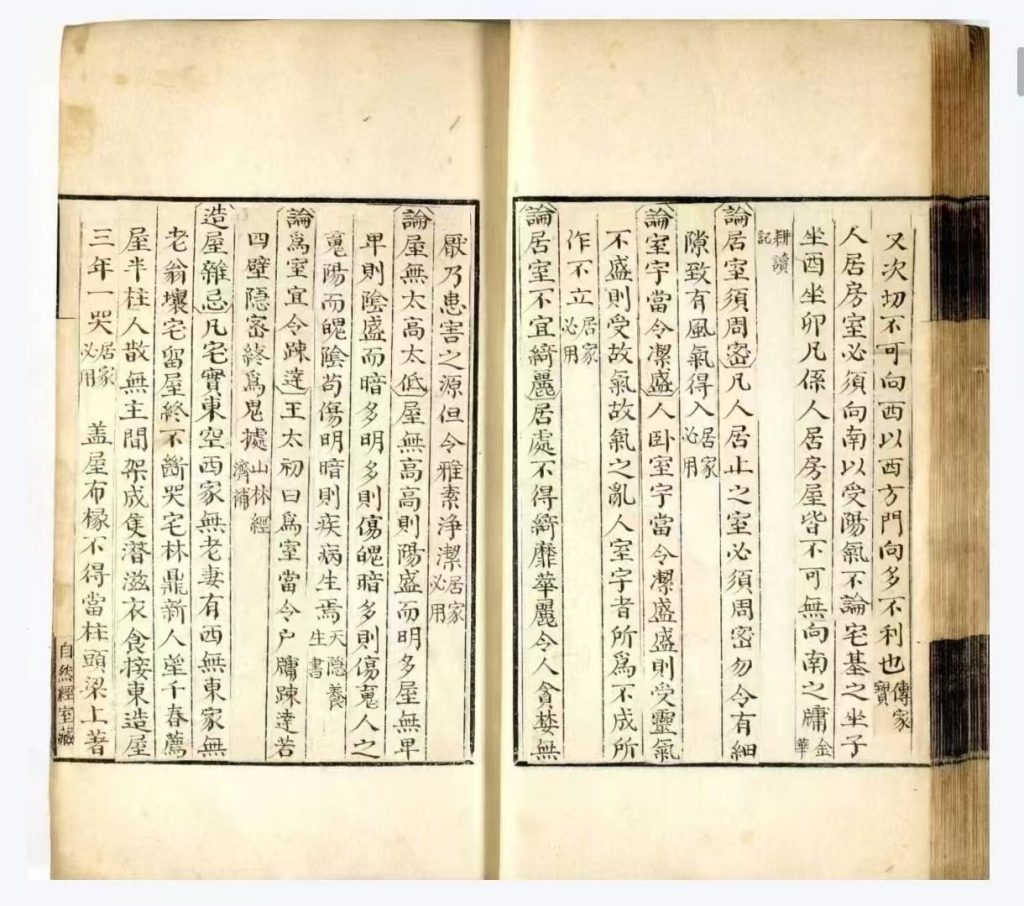 又次切不可向西以西方門向多不利也傳家寶
人居房室必須向南以受陽氣不論宅基之坐子
坐酉坐卯凡係人居房屋皆不可無向南之牖金華
耕讀記
論居室須周密凡人居止之室必須周密勿令有細
隙致有風氣得入居家必用
論室宇當令潔盛人卧室宇當令潔盛盛則受靈氣
不盛則受故氣故氣之亂人室宇者所爲不成所
作不立居家必用
論居室不宜綺麗居處不得綺靡華麗令人貪婪無
厭乃患害之源但令雅素浄潔居家必用
論屋無太高太低屋無高高則陽盛而明多屋無卑
卑則陰盛而暗多明多則傷魄暗多則傷䰟人之
䰟陽而魄陰苟傷明暗則疾病生焉天隠養生書
論爲室宜令踈達王太初曰爲室當令户牖踈達若
四壁隠密終爲鬼據山林經濟補
造屋雜忌凡宅實東空西家無老妻有西無東家無
老翁壞宅留屋終不斷哭宅林鼎新人㞷千春薦
屋半柱人散無主間架成隻潜滋衣食接東造屋
三年一哭居家必用 盖屋布椽不得當柱頭梁上著
自然經室藏